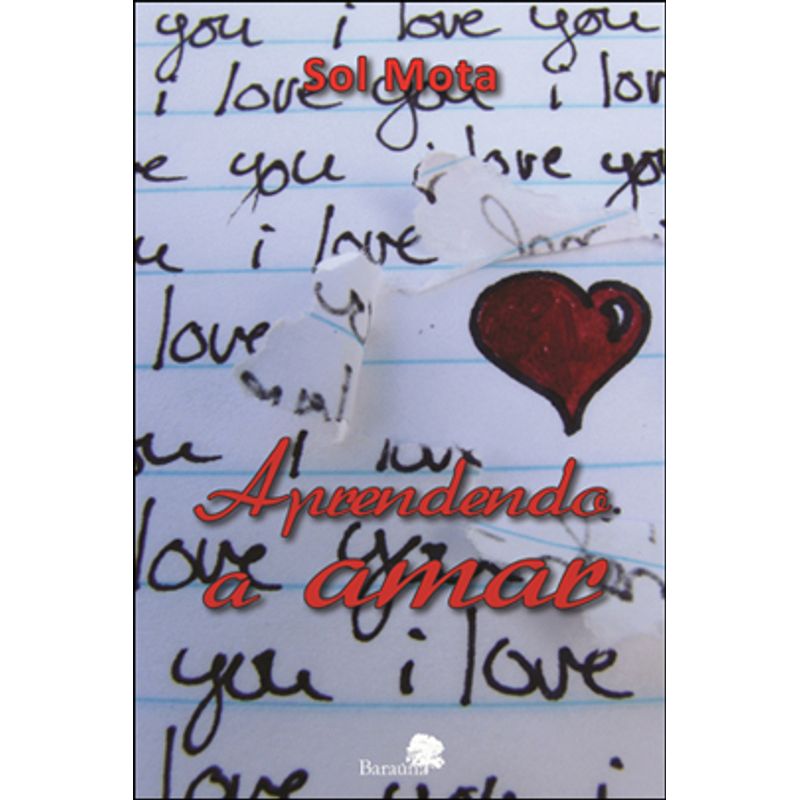 you i love you
Sol Mota
i love you i lov
e you i love you
u i love
love
u I love
Aprendendo
love you
a amar
you i love
love you i
Baraúna